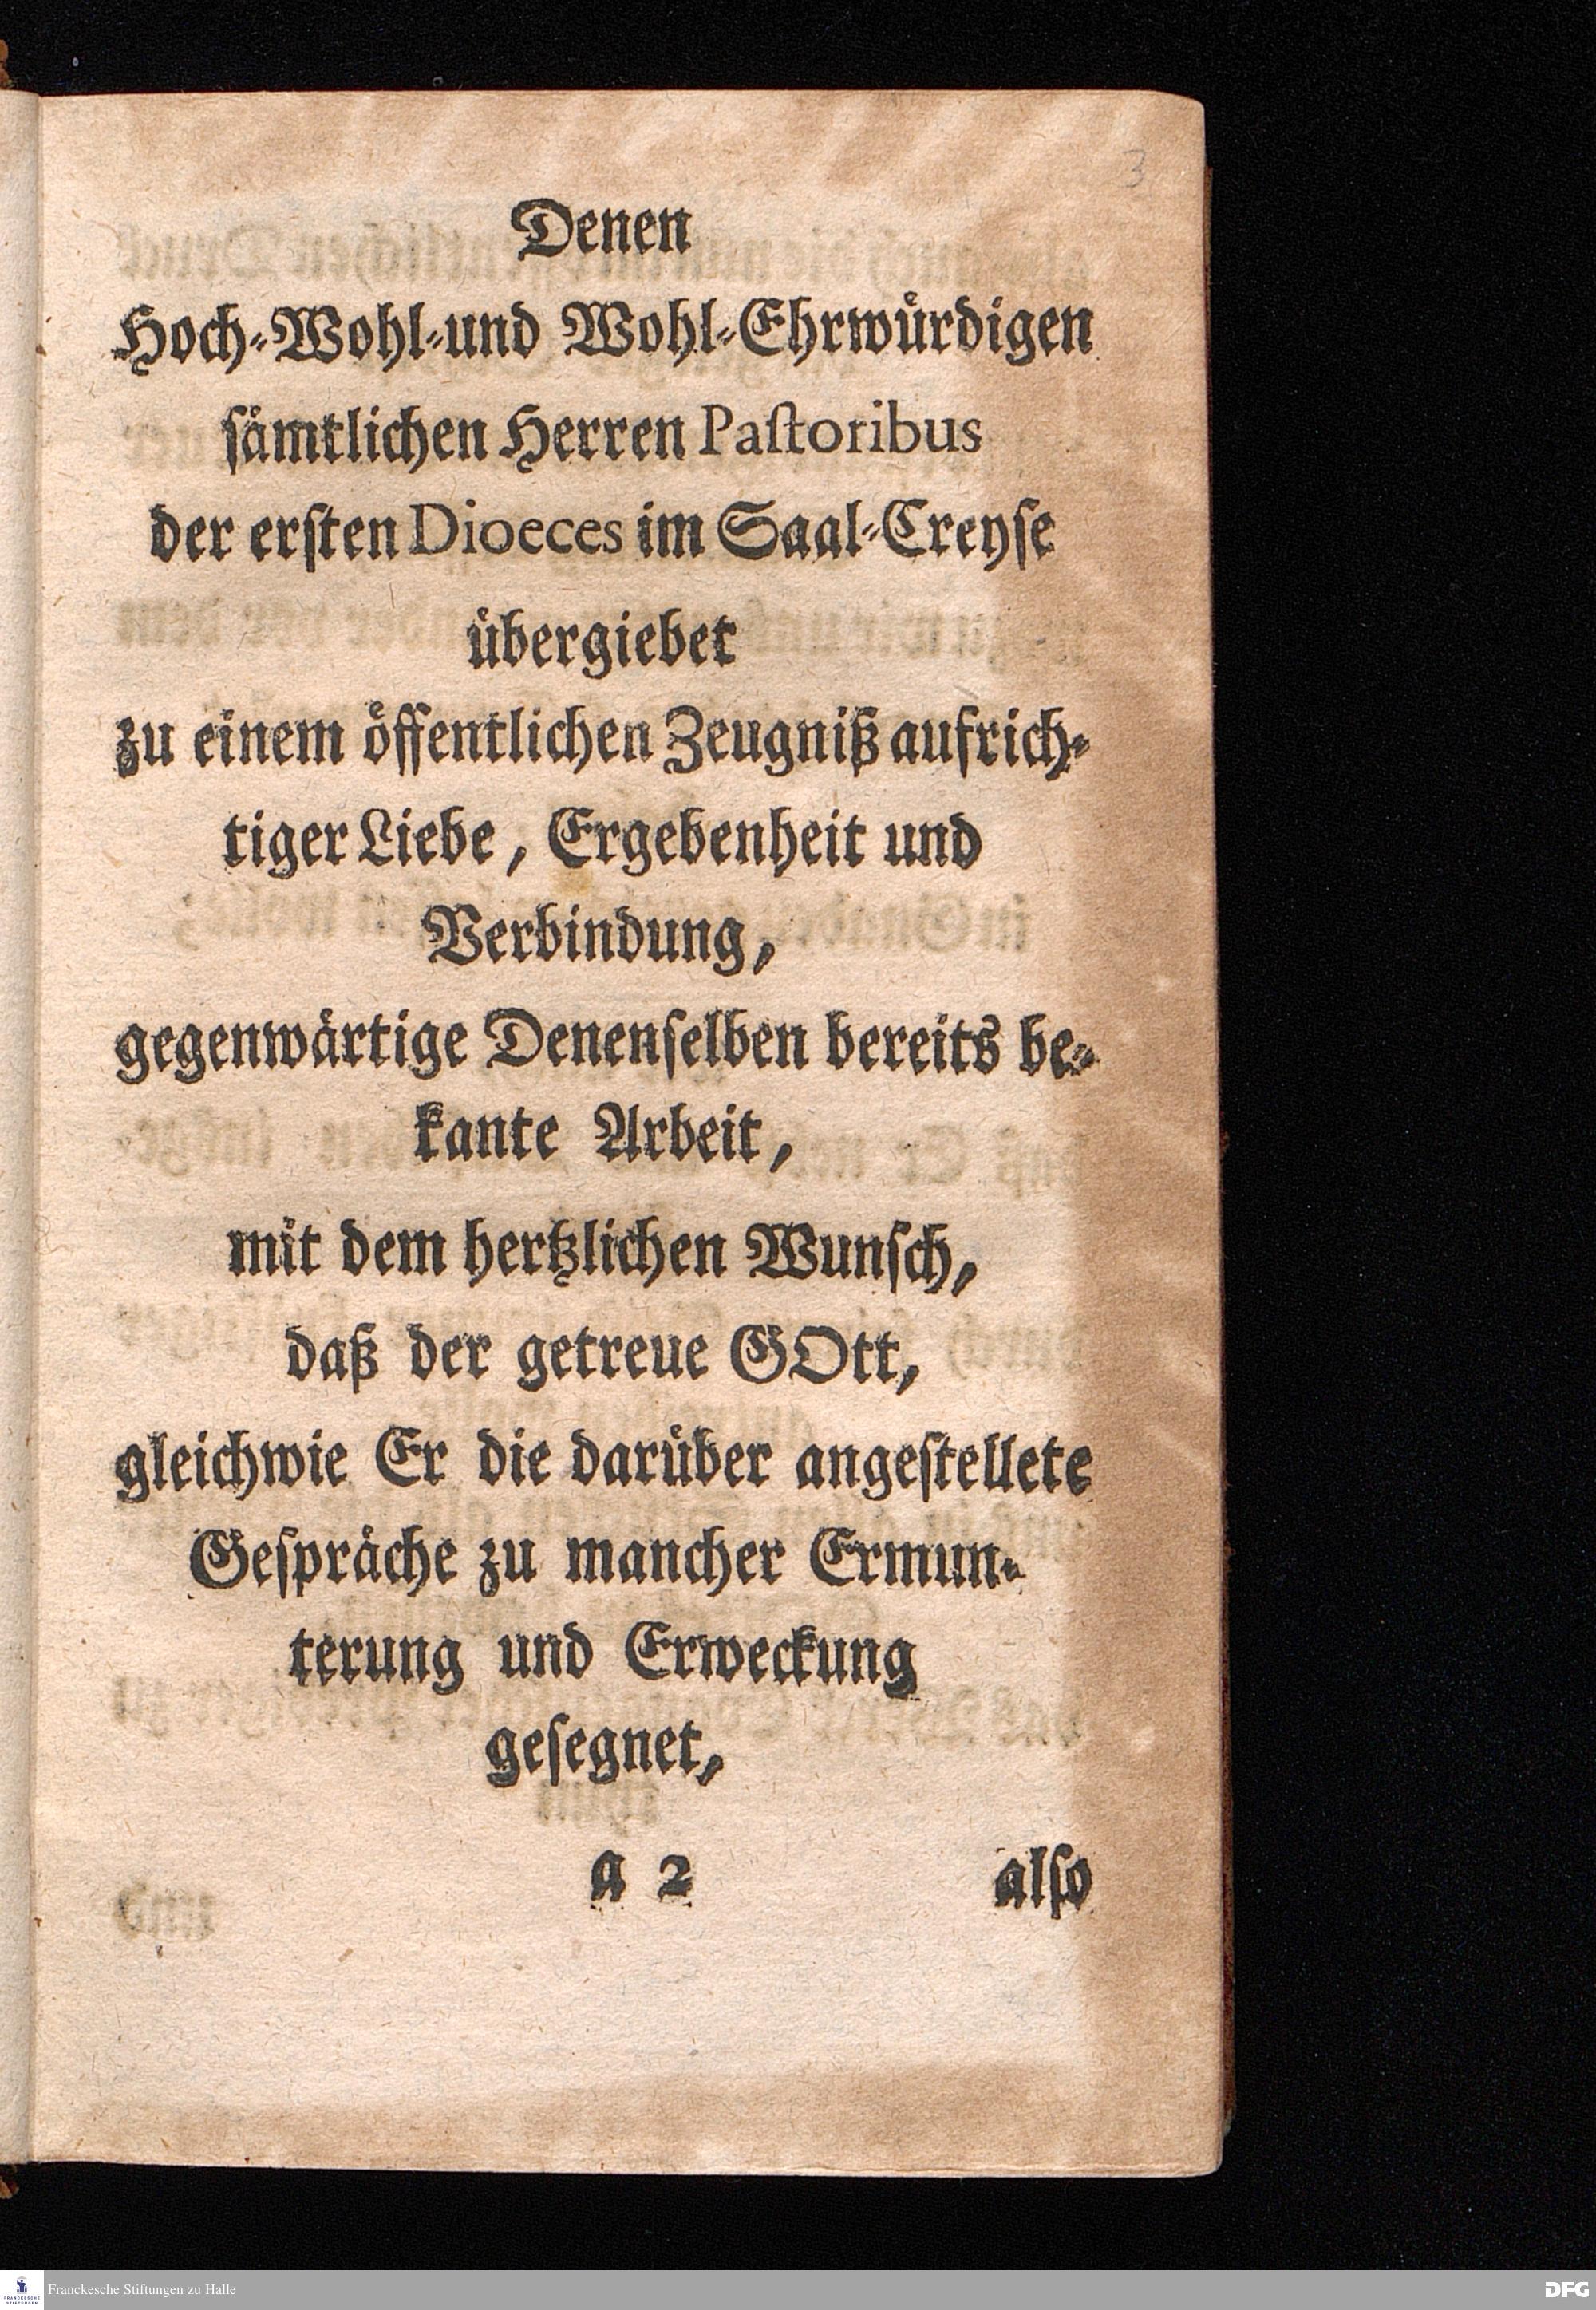 3
Denen
Hoch-Wohl-und Wohl-Ehrwuͤrdigen
ſaͤmtlichen Herren Paſtoribus
der erſten Dioeces im Saal-Creyſe
uͤbergiebet
zu einem oͤffentlichen Zeugniß aufrich-
tiger Liebe, Ergebenheit und
Verbindung,
gegenwaͤrtige Denenſelben bereits be-
kante Arbeit,
mit dem hertzlichen Wunſch,
daß der getreue GOtt,
gleichwie Er die daruͤber angeſtellete
Geſpraͤche zu mancher Ermun-
terung und Erweckung
geſegnet,
a 2 alſo
FRANCKESCHE STIFTUNGEN Franckesche Stiftungen zu Halle DFG